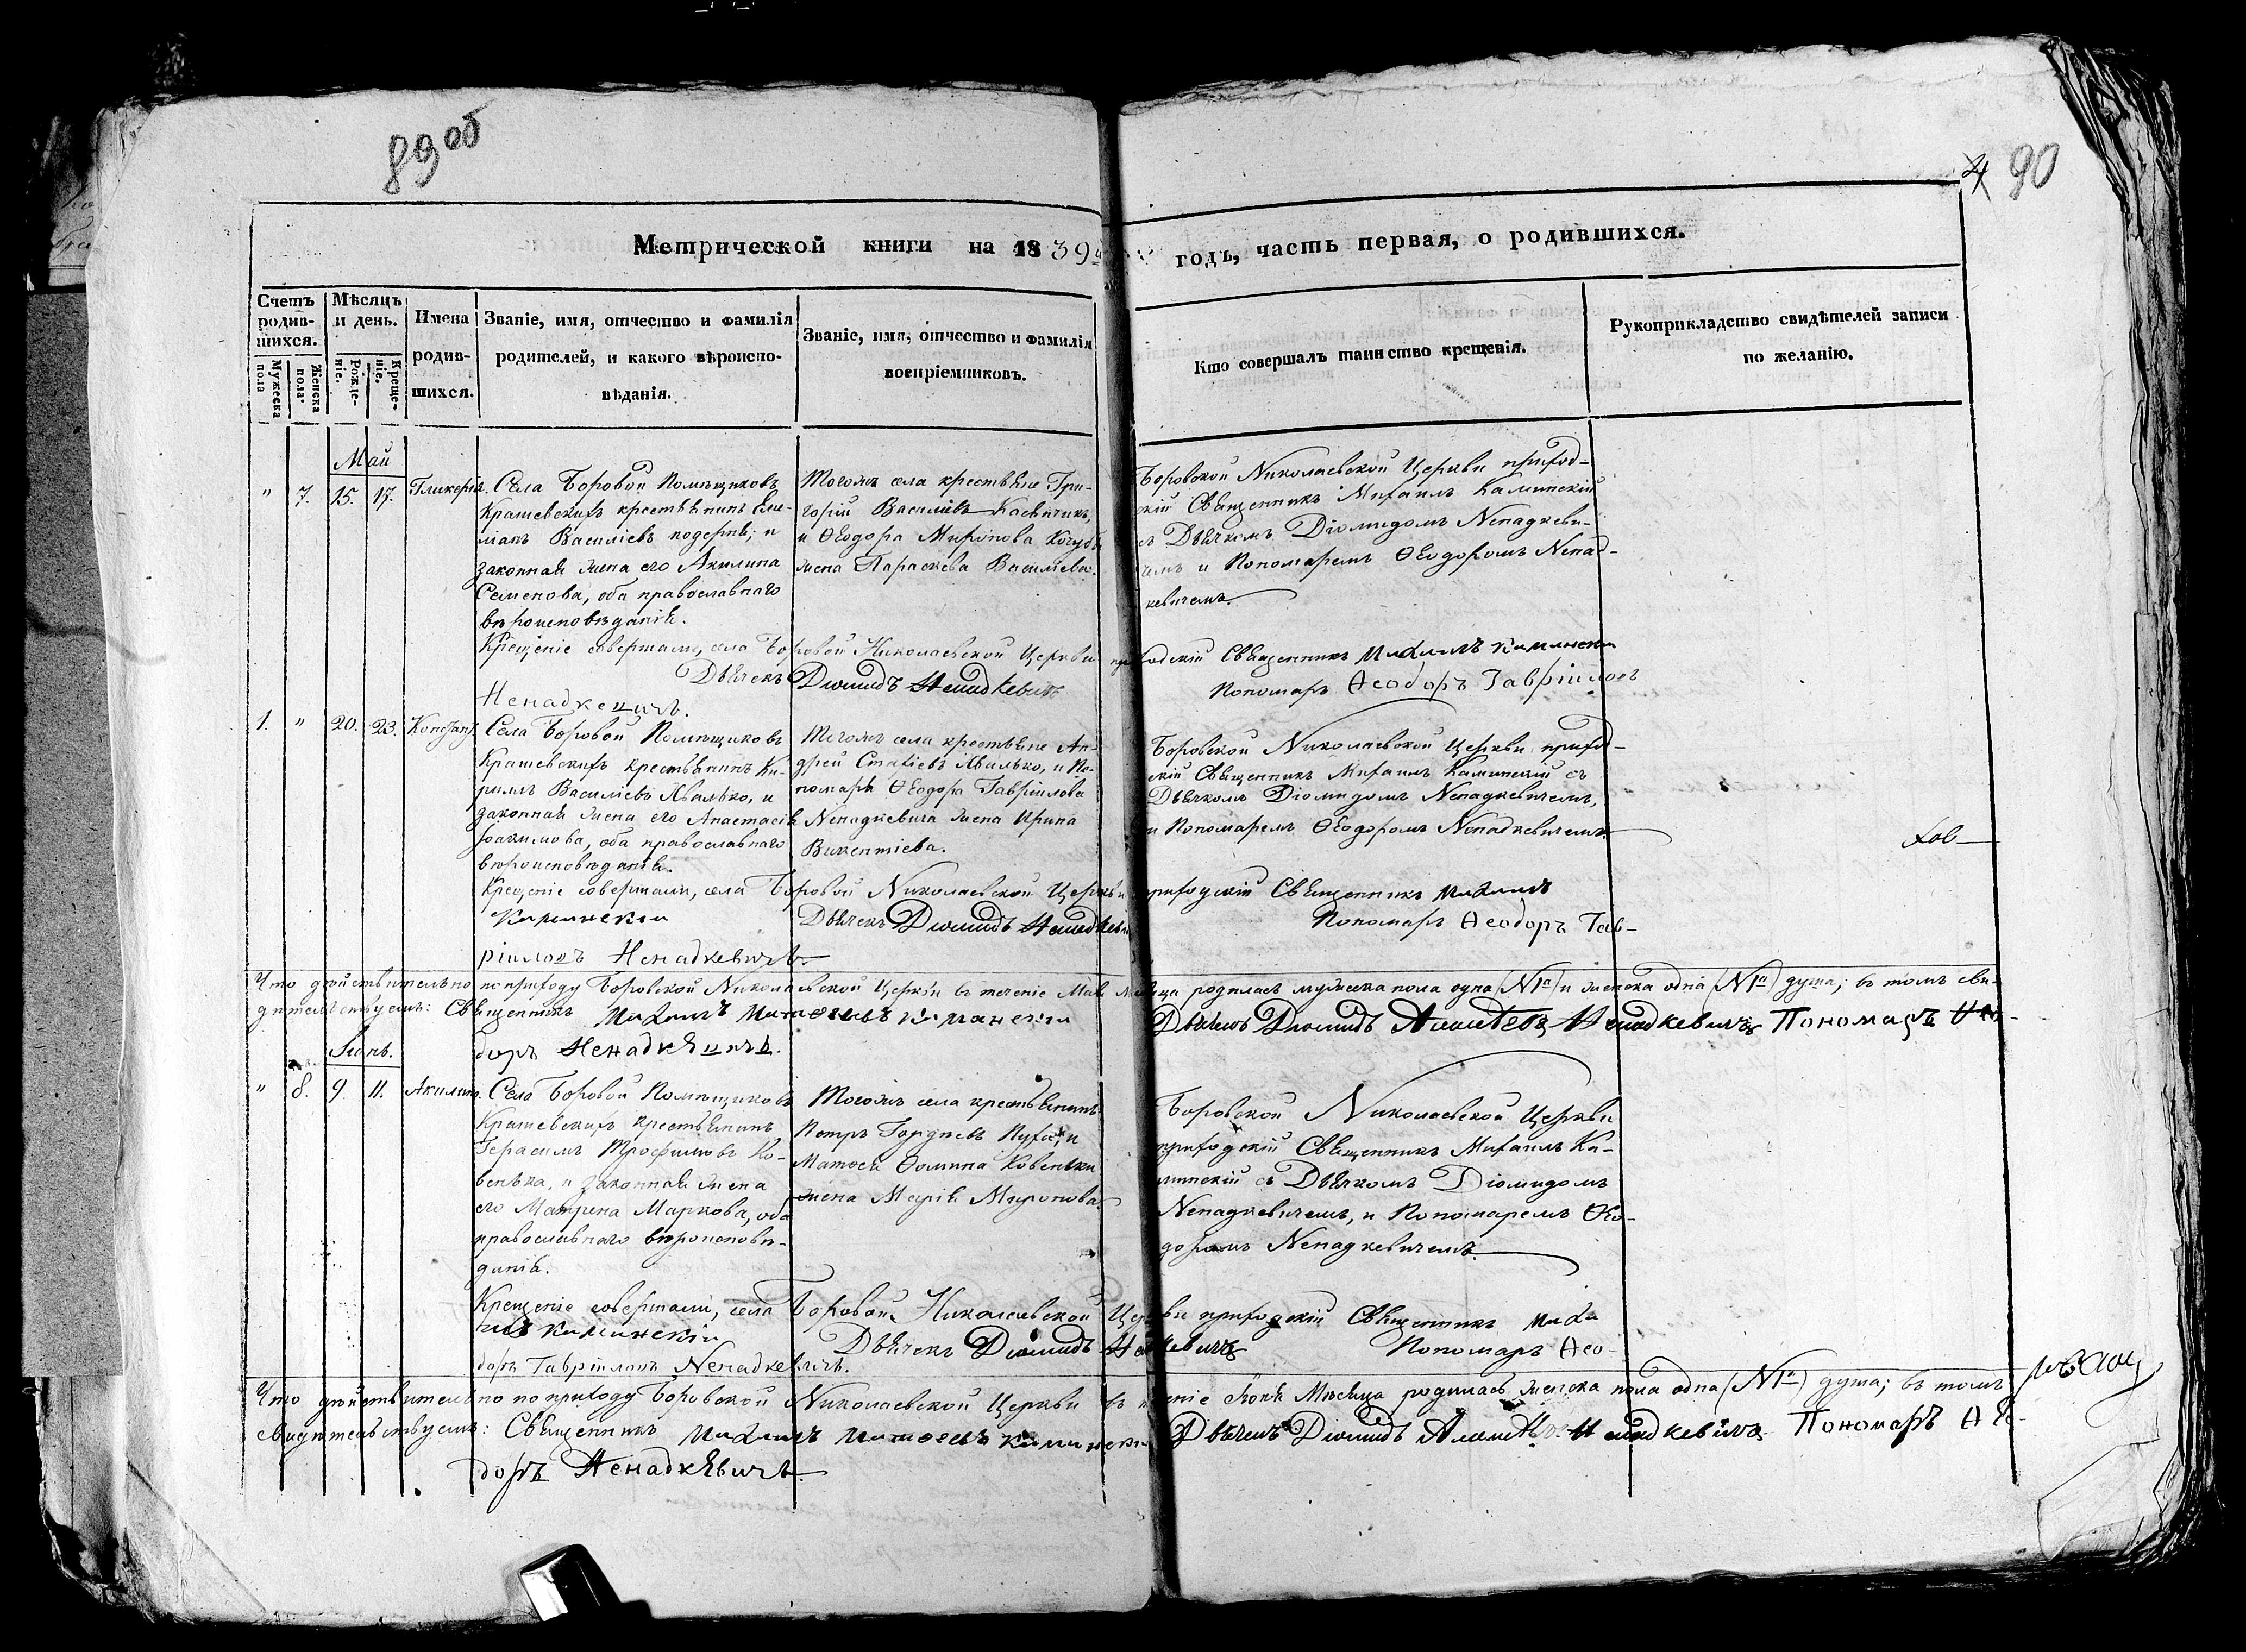 89 об
4 90
Метрической книги на 1839й годъ, часть первая, о родившихся.
Счетъ родив-шихся.
Мужеска пола
Женска пола.
Мѣсяцъ и день.
Рожде-ніе.
Креще-ніе.
Имена родив-шихся.
Званіе, имя, отчество и фамилія
родителей, и какого вѣроиспо-
вѣданія.
Званіе, имя, отчество и фамилія
воспріемниковъ.
Кто совершалъ таинство крещенія.
Рукоприкладство свидѣтелей записи
по желанію.
Май
" 7. 15. 17. Гликерія.
Села Боровой Помѣщиковъ
Крашевскихъ крестьянинъ
Василіевъ и
законная жена его Акилина
Семенова, оба православнаго
вѣроисповѣданія.
Тогожъ села крестьяне Гри-
горій Василіевъ
и Ѳеодора Миронова
жена Параскева Василіева.
Боровской Николаевской Церкви приход-
скій Священникъ Михаилъ Каминскій
съ Дьячкомъ Діомидомъ Ненадкеви-
чемъ и Пономаремъ Ѳеодоромъ Ненад-
кевичемъ.
Крещеніе совершали, села Боровой Николаевской Церкви приходскій Священникъ Михаилъ Каминскій
Дьячекъ Диомидъ Ненадкевичъ Пономарь Ѳеодоръ Гавріиловъ
Ненадкевичъ.
1. " 20. 23.
Села Боровой Помѣщиковъ
Крашевскихъ крестьянинъ Ки-
риллъ Василіевъ Хвалько, и
законная жена его Анастасія
Іоакимова, оба православнаго
вѣроисповѣданія.
Тогожъ села крестьяне Ан-
дрей Хвалько, и По-
номаря Ѳеодора Гавріилова
Ненадкевича жена Ирина
Викентіева.
Боровской Николаевской Церкви приход-
скій Священникъ Михаилъ Каминскій съ
Дьячкомъ Діомидомъ Ненадкевичемъ,
и Пономаремъ Ѳеодоромъ Ненадкевичемъ.
Крещеніе совершали, села Боровой Николаевской Церкви приходскій Священникъ Михаилъ
Каминскій Дьячекъ Диомидъ Ненадкевичъ Пономарь Ѳеодоръ Гав-
ріиловъ Ненадкевичъ
Что дѣйствительно по приходу Боровской Николаевской Церкви въ теченіе Мая Мѣсяца родилась мужеска пола одна (N 1а) и женска одна (N 1а) душа; въ томъ сви-
дѣтельствуемъ: Священникъ Михаилъ Каминскій Дьячекъ Диомидъ Ненадкевичъ Пономарь Ѳео-
доръ Ненадкевичъ.
Іюнь.
" 8. 9. 11. Акилина.
Села Боровой Помѣщиковъ
Крашевскихъ Крестьянинъ
Герасимъ Трофимовъ Ко-
венька, и законная жена
его Матрина Маркова, оба
православнаго вѣроисповѣ-
данія.
Тогожъ села крестьянинъ
Петръ Гордѣевъ Пуха, и
Матѳея Ѳомина Ковеньки
жена Марія Миронова.
Боровской Николаевской Церкви
приходскій Священникъ Михаилъ Ка-
минскій съ Дьячкомъ Діомидомъ
Ненадкевичемъ, и Пономаремъ Ѳео-
доромъ Ненадкевичемъ.
Крещеніе совершали, села Боровой Николаевской Церкви приходскій Священникъ Миха
илъ Каминскій Дьячекъ Диомидъ Ненадкевичъ Пономарь Ѳео-
доръ Гавріиловъ Ненадкевичъ.
Что дѣйствительно по приходу Боровской Николаевской Церкви въ теченіе Іюня Мѣсяца родилась женска пола одна (N 1а) душа; въ томъ
свидѣтельствуемъ: Священникъ Михаилъ Каминскій Дьячекъ Диомидъ Ненадкевичъ Пономарь Ѳео-
доръ Ненадкевичъ